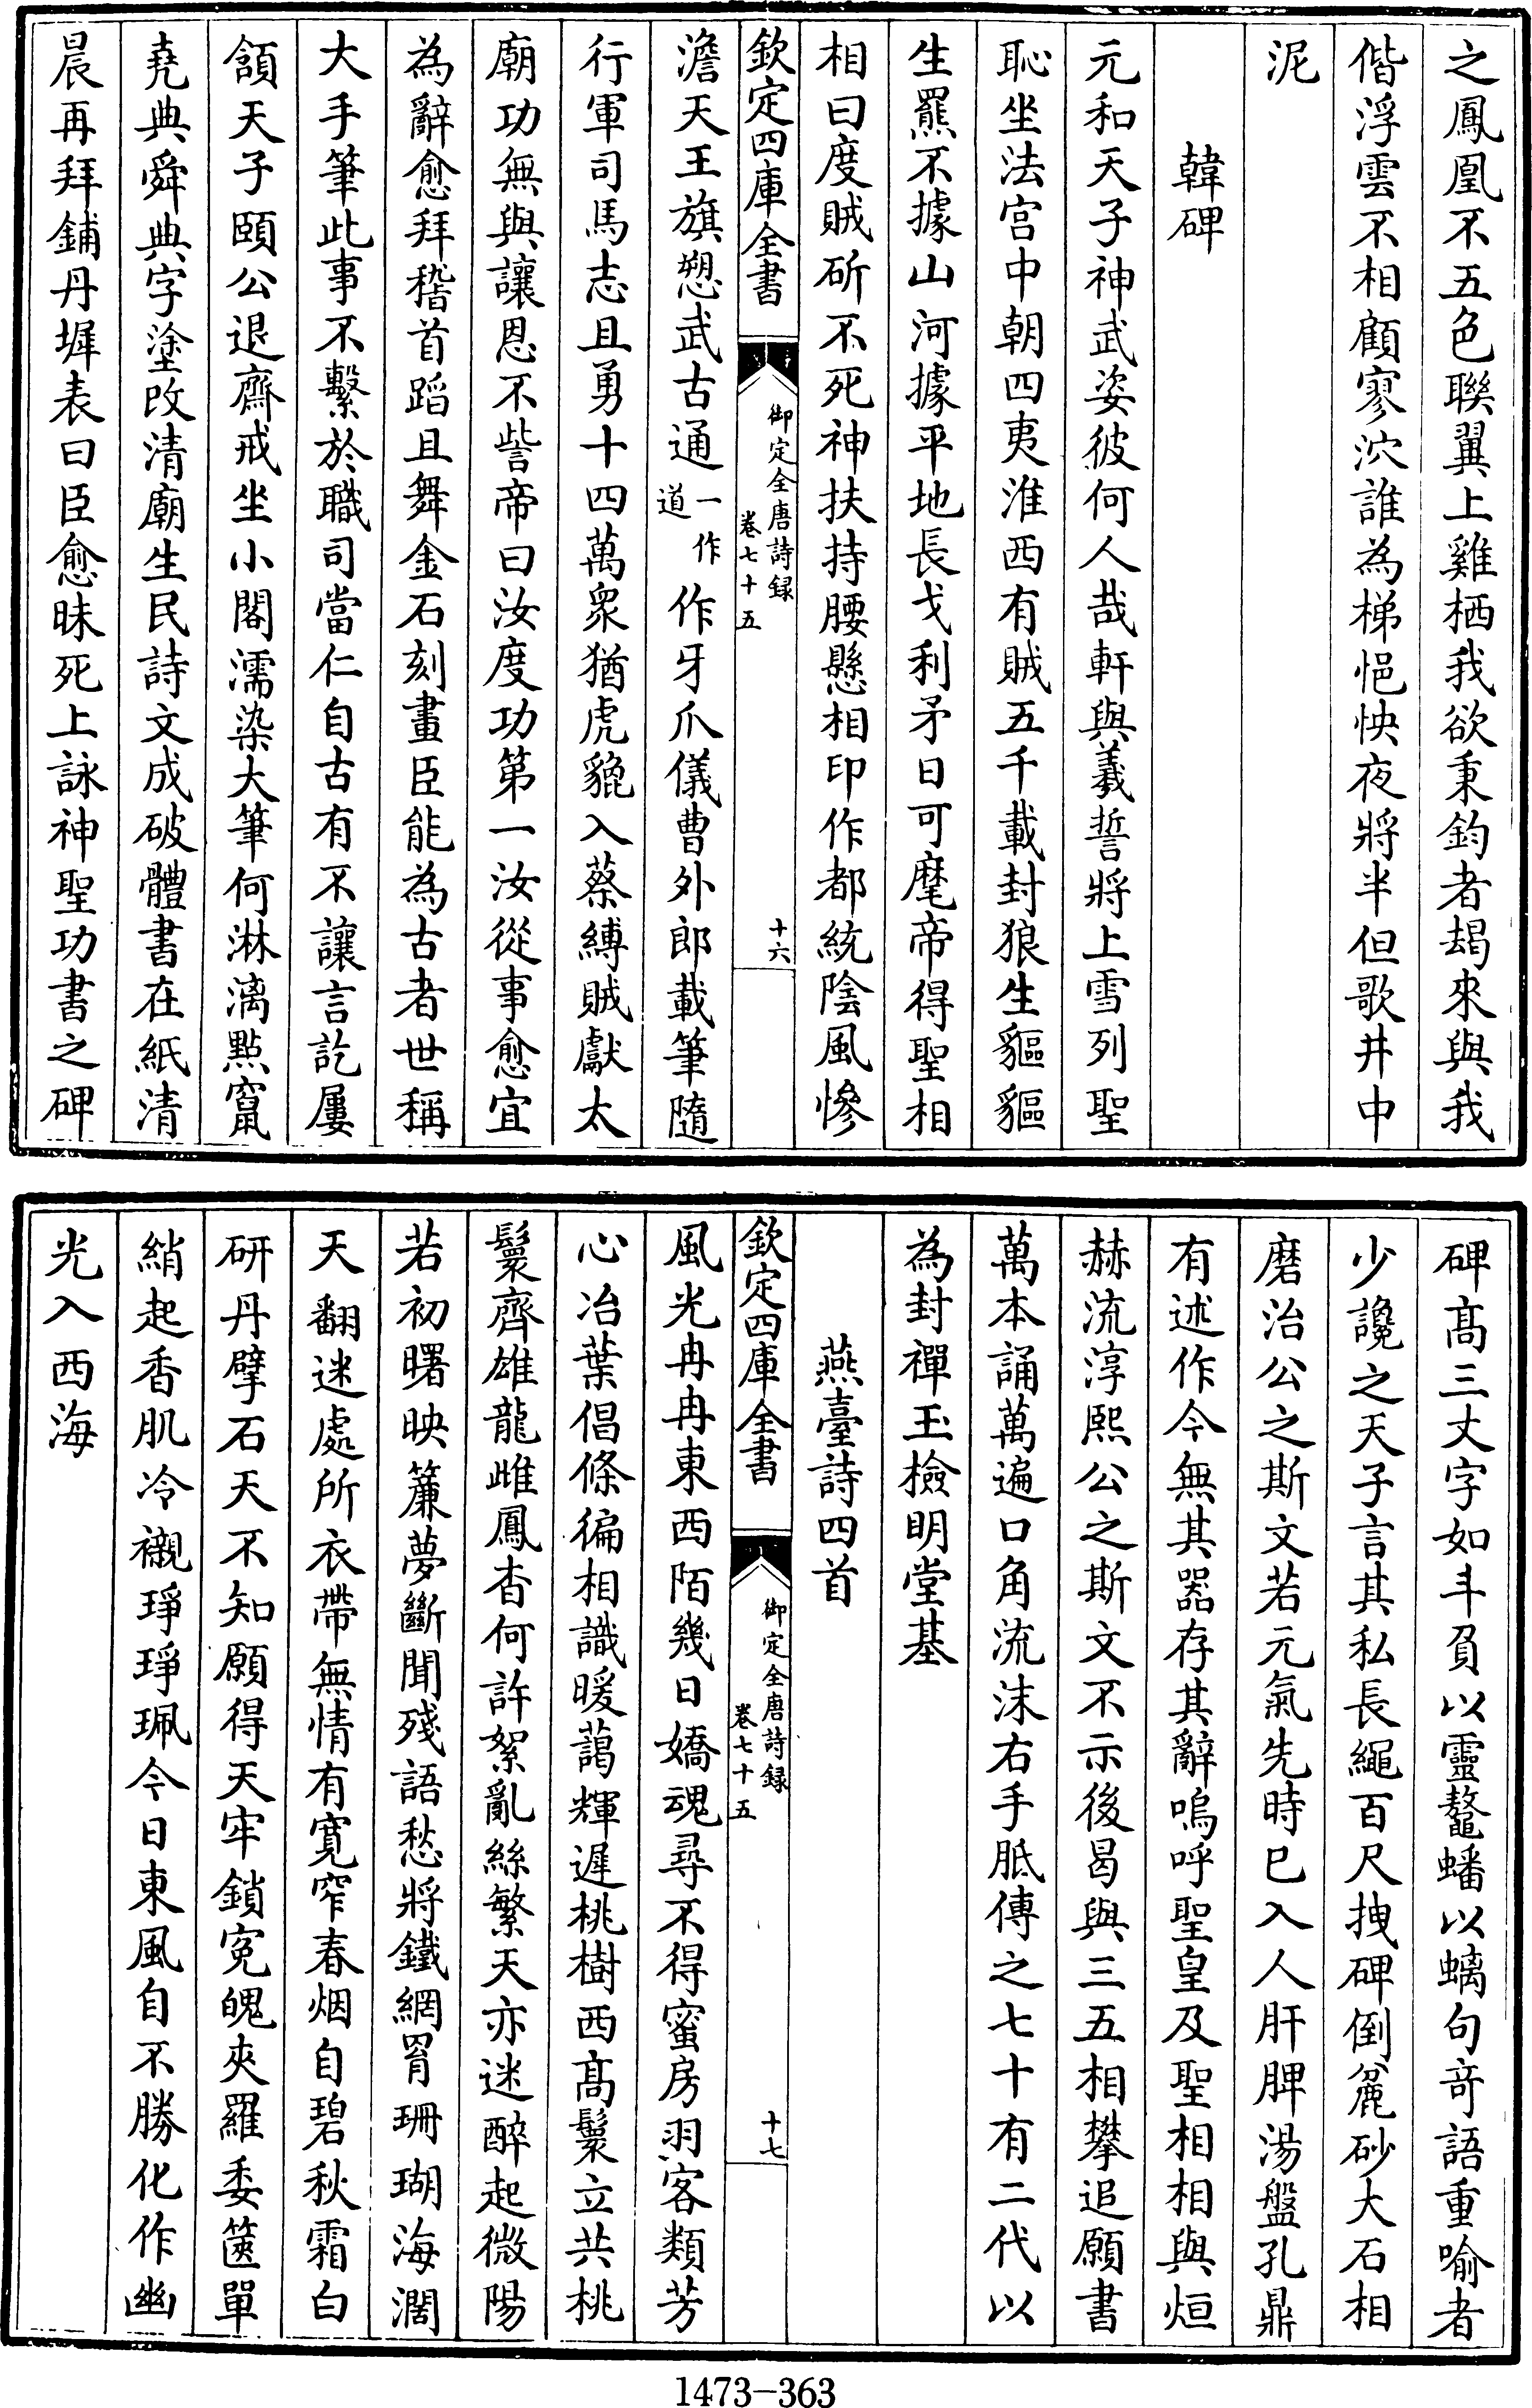 之鳳凰不五色聯翼上雞栖我欲秉鈞者朅來與我
偕浮雲不相顧寥泬誰為梯悒怏夜將半但歌井中
泥
韓碑
元和天子神武姿彼何人哉軒與羲誓將上雪列聖
恥坐法宫中朝四夷淮西有賊五千載封狼生貙貙
生羆不據山河據平地長戈利矛日可麾帝得聖相
相曰度賊斫不死神扶持腰懸相印作都統陰風慘
欽定四庫全書
御定全唐詩録
卷七十五
十六
澹天王旗愬武古通一作道作牙爪儀曹外郎載筆隨
行軍司馬志且勇十四萬衆猶虎貔入蔡縛賊獻太
廟功無與讓恩不訾帝曰汝度功第一汝從事愈宜
為辭愈拜稽首蹈且舞金石刻畫臣能為古者世稱
大手筆此事不繫於職司當仁自古有不讓言訖屢
頷天子頤公退齋戒坐小閣濡染大筆何淋漓點竄
堯典舜典字塗改清廟生民詩文成破體書在紙清
晨再拜鋪丹墀表曰臣愈昧死上詠神聖功書之碑
碑髙三丈字如斗負以靈鼇蟠以螭句竒語重喻者
少讒之天子言其私長繩百尺拽碑倒麄砂大石相
磨治公之斯文若元氣先時已入人肝脾湯盤孔鼎
有述作今無其器存其辭嗚呼聖皇及聖相相與烜
赫流淳熙公之斯文不示後曷與三五相攀追願書
萬本誦萬遍口角流沫右手胝傳之七十有二代以
為封禪玉檢明堂基
燕臺詩四首
欽定四庫全書
御定全唐詩録
卷七十五
十七
風光冉冉東西陌幾日嬌魂尋不得蜜房羽客類芳
心冶葉倡條徧相識暖藹輝遲桃樹西髙鬟立共桃
鬟齊雄龍雌鳳杳何許絮亂絲繁天亦迷醉起微陽
若初曙映簾夢斷聞殘語愁將鐵網罥珊瑚海濶
天翻迷處所衣帶無情有寛窄春烟自碧秋霜白
研丹擘石天不知願得天牢鎖寃魄夾羅委篋單
綃起香肌冷襯琤琤珮今日東風自不勝化作幽
光入西海
1473-363